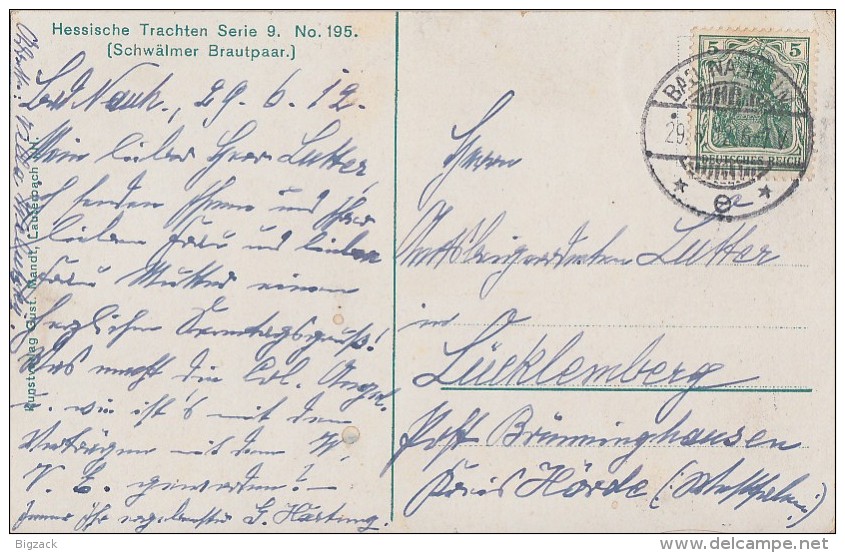 Hessische Trachten Serie 9. No. 195.
(Schwälmer Brautpaar.)
Bad Nauh., 29. 6. 12.
Mein lieber Herr Lutter,
senden Ihnen und Ihrer
lieben Frau und lieben
Frau Mutter einen
herzlichen Sonntagsgruß!
Was macht die Col. Angel.
u. wie ist's mit den
Verträgen mit dem W.
V. E. geworden? –
Immer Ihr ergebenster G. Härting.
Kunstverlag Gust. Mandt, Lauterbach i. H.
5 5
DEUTSCHES REICH
BAD NAUHEIM
29.
Herrn
Lutter
in
Lücklemberg
Post Brünninghausen
Kreis Hörde (Westfalen)
Bigzack
www.delcampe.net